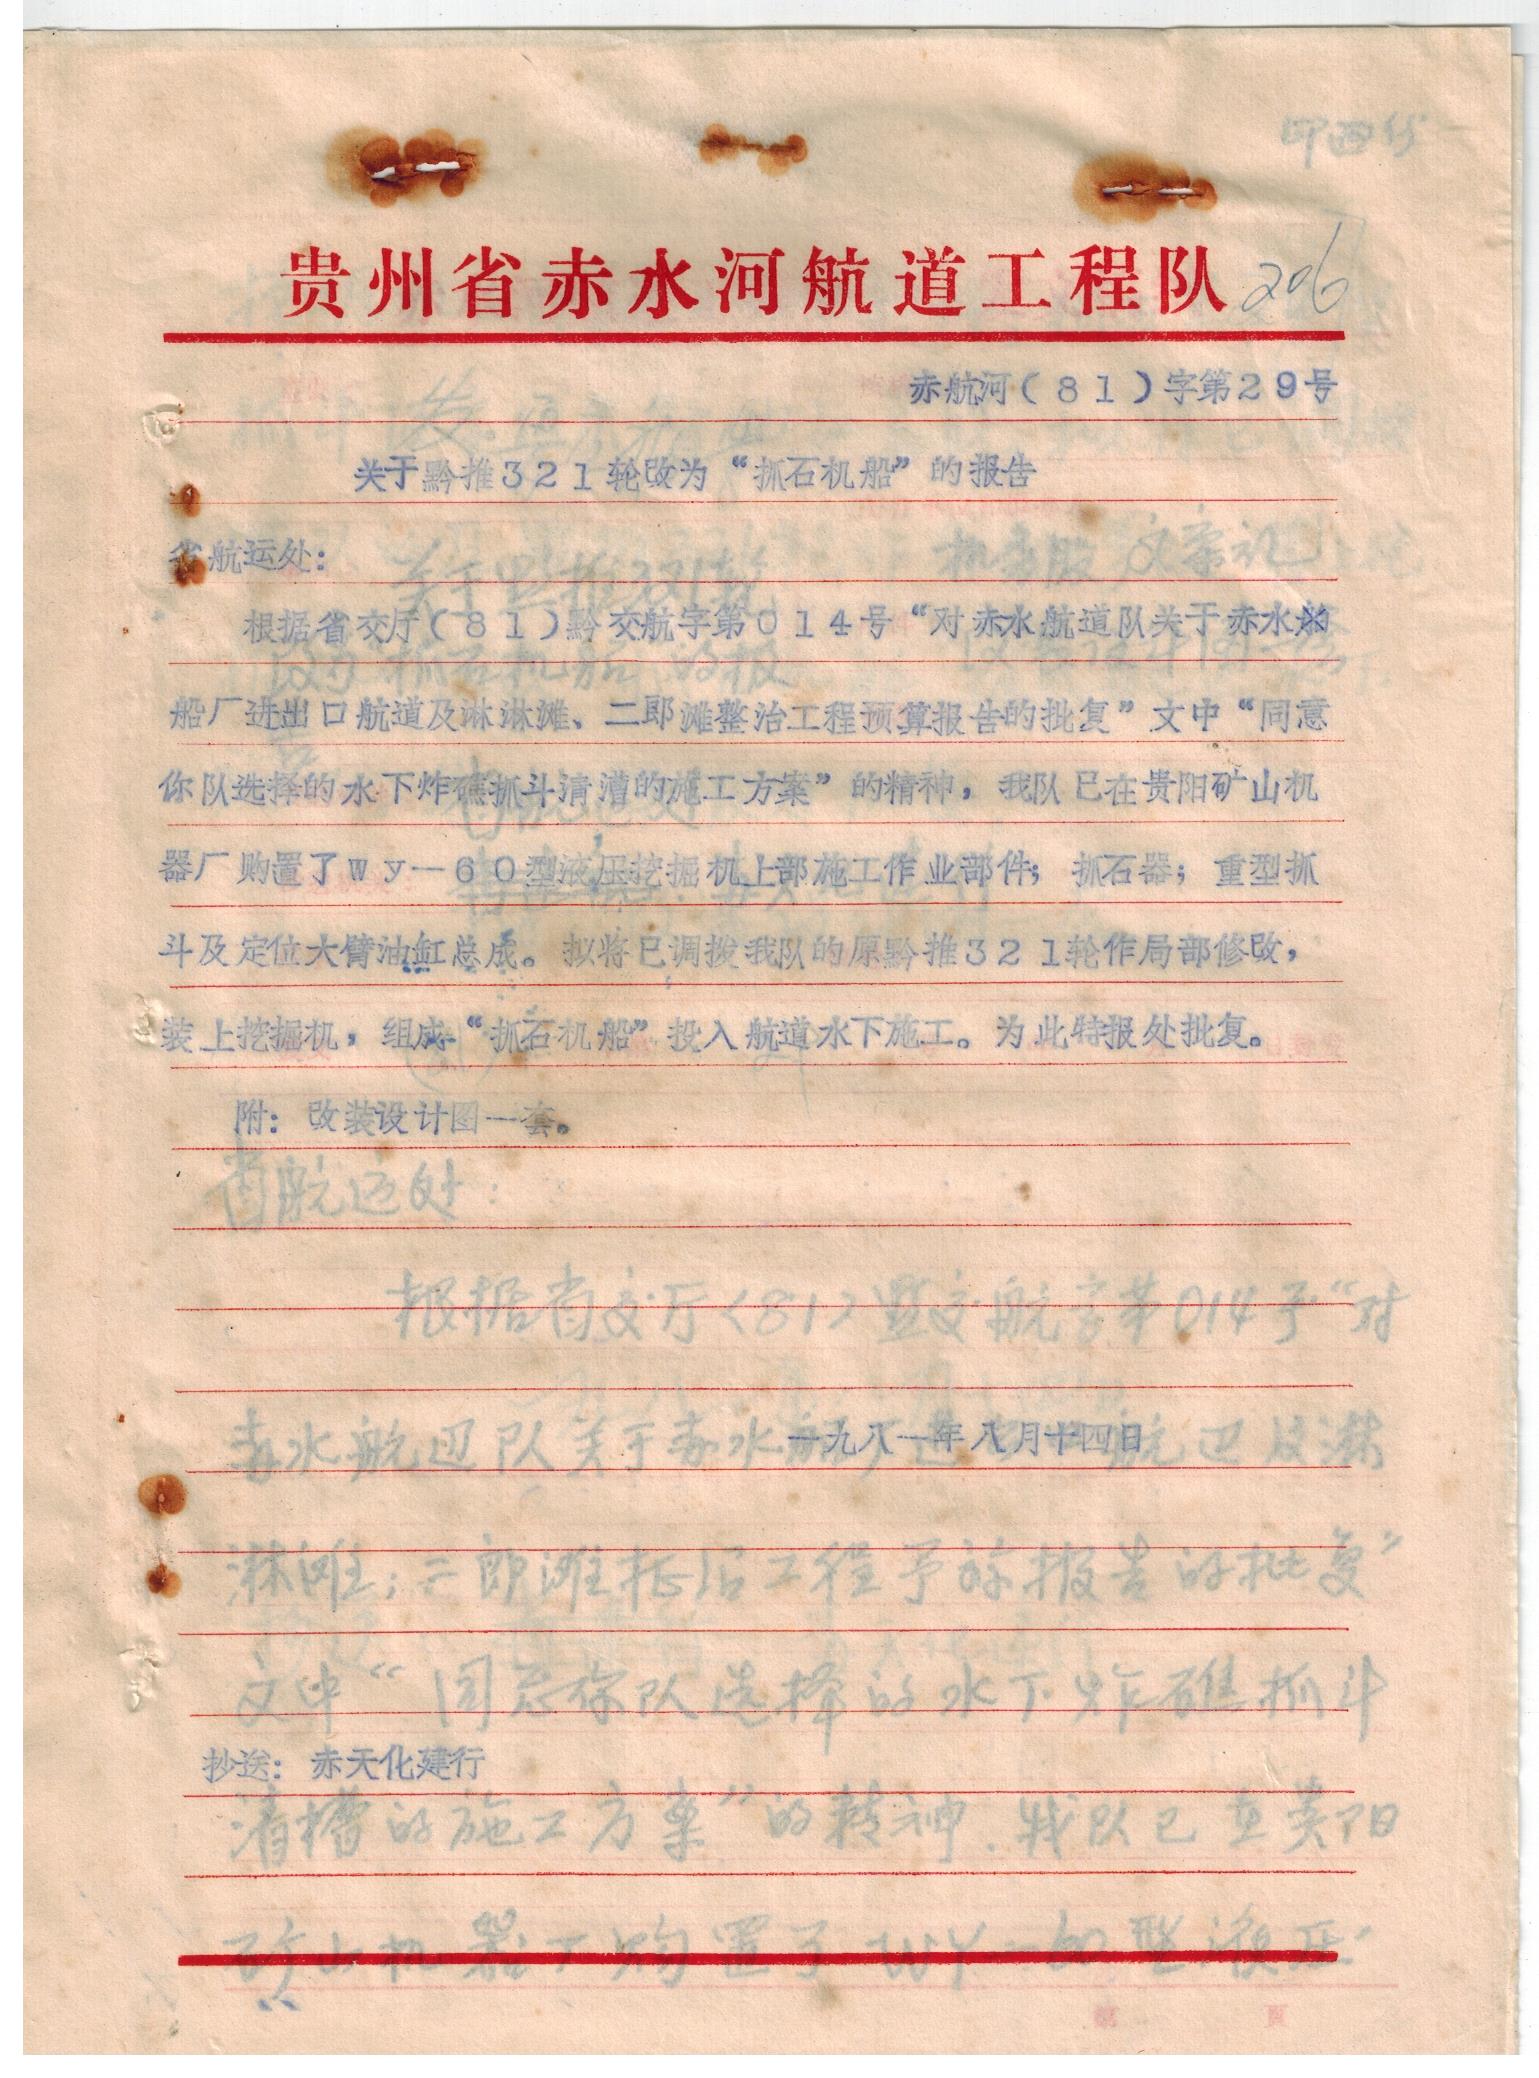 印四份
贵州省赤水河航道工程队
206
赤航河(81)字第29号
关于黔推321轮改为“抓石机船”的报告
省航运处:
根据省交厅(81)黔交航字第014号“对赤水航道队关于赤水船
船厂进出口航道及淋淋滩、二郎滩整治工程预算报告的批复”文中“同意
你队选择的水下炸礁抓斗清漕的施工方案”的精神,我队已在贵阳矿山机
器厂购置了wy—60型液压挖掘机上部施工作业部件;抓石器;重型抓
斗及定位大臂油缸总成。拟将已调拨我队的原黔推321轮作局部修改,
装上挖掘机,组成“抓石机船”投入航道水下施工。为此特报处批复。
附:改装设计图一套。
省航运处:
根据省交厅(81)黔交航字第014号“对
赤水航道队关于赤水
一九八一年八月十四日
航道及淋
淋滩;二郎滩整治工程予标报告的批复”
文中“同意你队选择的水下炸礁抓斗
抄送:赤天化建行
清槽的施工方案”的精神.我队已在贵阳
矿山机器厂购置了WY—60型液压